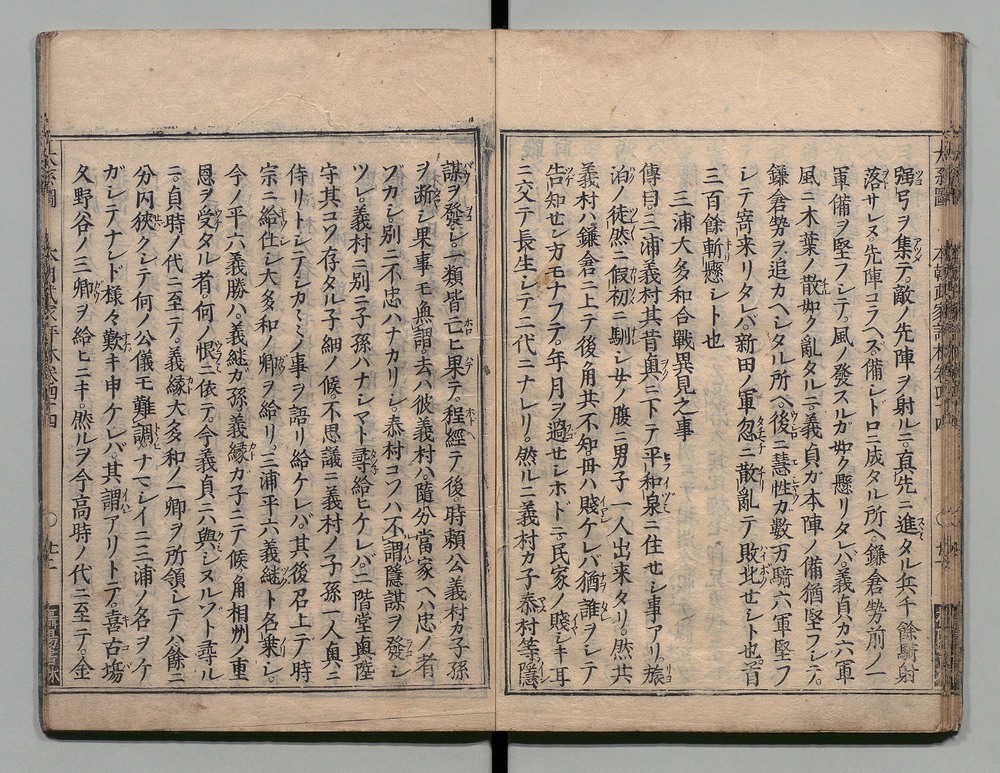 强弓ヲ集テ敵ノ先陣ヲ射ルニ。真先ニ進タル兵千餘騎射
落サレヌ。先陣コラヘズ。備シドロニ成タル所ヘ。鎌倉勢前ノ一
軍備ヲ堅フシテ。風ノ發スルガ如ク懸リタレバ。義貞カ六軍
風ニ木葉ノ散如ク亂タルニ。義貞ガ本陣ノ備猶堅フシテ。
鎌倉勢ヲ追カヘシタル所ヘ。後ニ慧性カ數万騎六軍堅フ
シテ寄来リタレバ。新田ノ軍忽ニ散亂テ敗北セシト也。首
三百餘斬懸シト也
三浦大多和合戰異見之事
傳曰三浦義村其昔奥ニ下テ平和泉ニ住セシ事アリ。旅
泊ノ徒然ニ假初ニ馴シ女ノ腹ニ男子一人出来タリ。然共
義村ハ鎌倉ニ上テ後角共不知。母ハ賤ケレバ猶誰ヲシテ
告知セシ方モナフテ。年月ヲ過セシホドニ民家ノ賤シキ耳
ニ交テ長生シテ二代ニナレリ。然ルニ義村カ子泰村等隱
謀ヲ發シ。一類皆亡ヒ果テ。程經テ後。時頼公義村カ子孫
ヲ断シ果事モ無謂。去ハ彼義村ハ。隨分當家ヘハ忠 者
ゾカシ。別ニ不忠ハナカリシ。泰村コソハ不謂隱謀ヲ發シ
ツレ。義村ニ別ニ子孫ハナシマト尋給ヒケレバ。二階堂奥陸
守其コソ存タル子細ノ候。不思議ニ義村ノ子孫一人奥ニ
侍リトシテシカ〱ノ事ヲ語リ給ケレバ。其後召上テ時
宗ニ給仕シ大多和ノ卿ヲ給リ。三浦平六義継ト名乗シ。
今ノ平六義勝ハ。義継ガ孫。義縁カ子ニテ候。角相州ノ重
恩ヲ受タル者。何ノ恨ニ依テ。今義貞ニハ與シヌルゾト尋ル
ニ。貞時ノ代ニ至テ。義縁大多和ノ一卿ヲ所領シテハ餘ニ
分内狹クシテ何ノ公儀モ難調ナマシイニ三浦ノ名ヲケ
ガシテナンド様々歎キ申ケレバ。其謂アリトテ。喜古塲
久野谷ノ三卿ヲ給ヒニキ。然ルヲ今高時ノ代ニ至テ。金